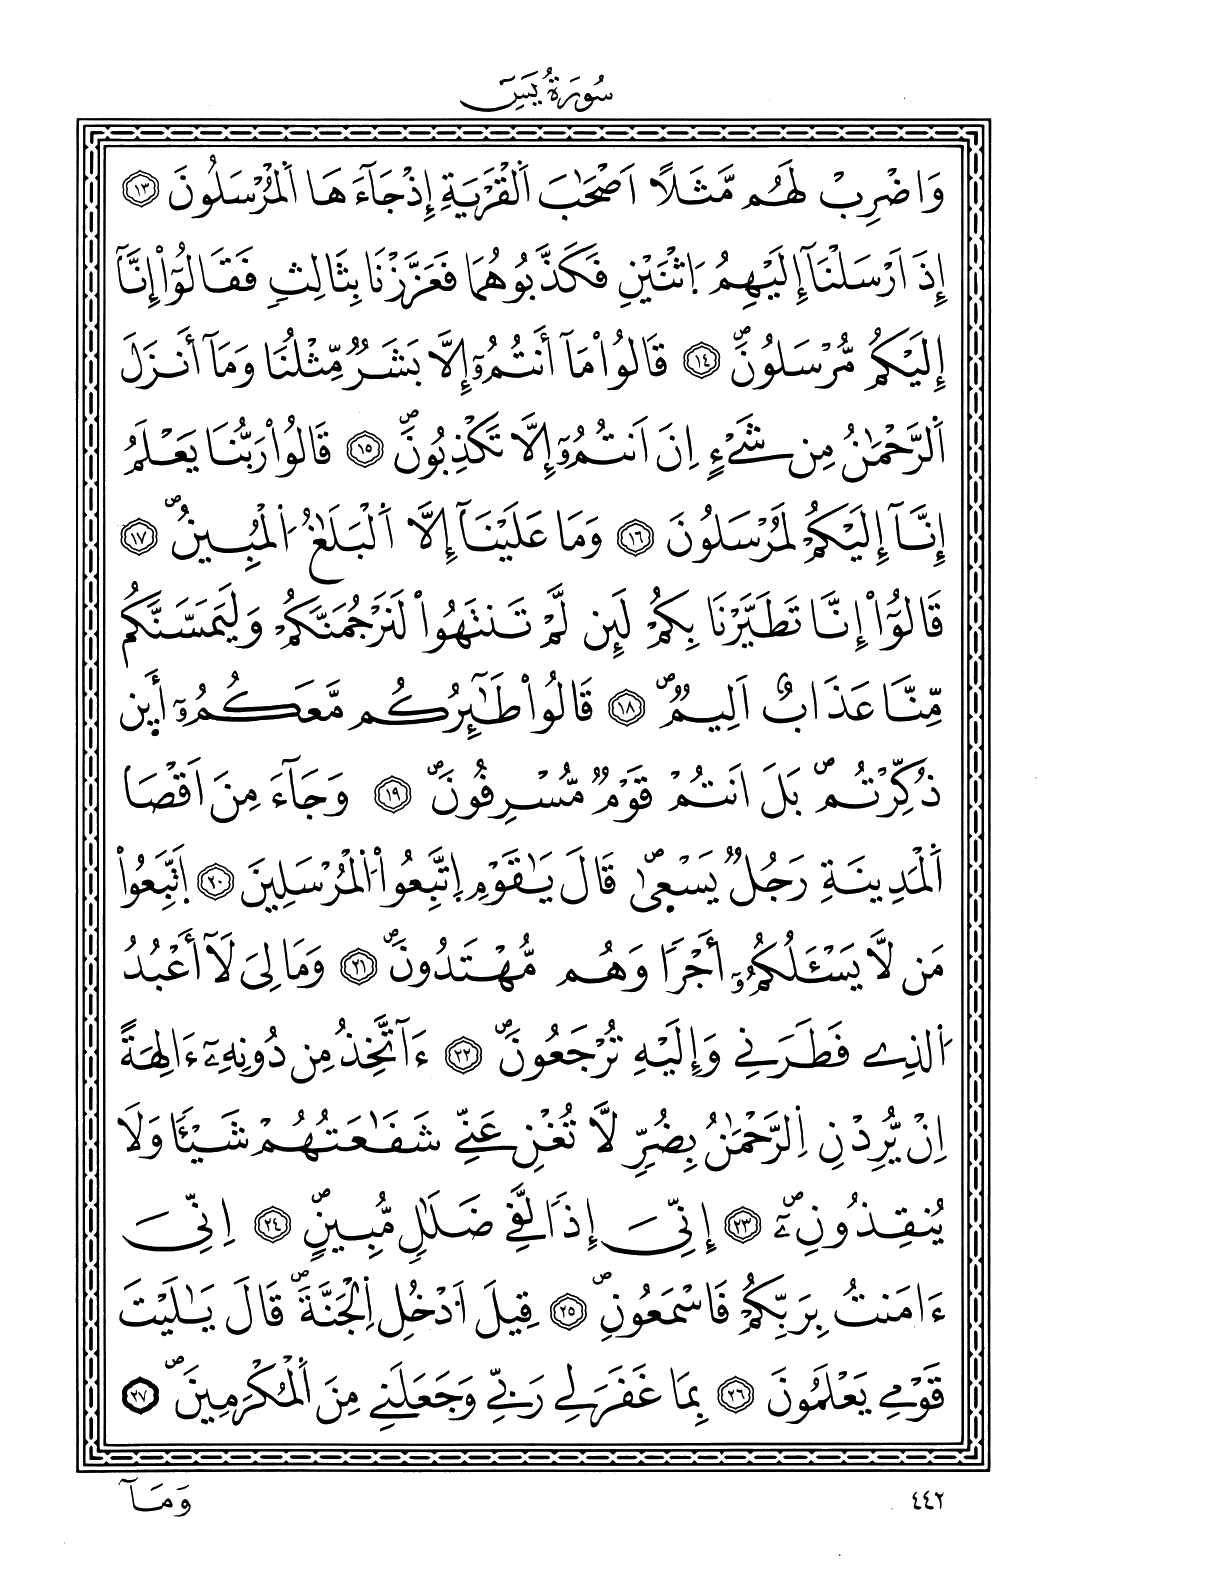 سُورَةُ يَسٓ
وَاضْرِبْ لَهُم مَّثَلًا اَصْحَٰبَ اَ۬لْقَرْيَةِ إِذْ جَآءَهَا اَ۬لْمُرْسَلُونَ ١٣
إِذَ اَرْسَلْنَآ إِلَيْهِمُ اُ۪ثْنَيْنِ فَكَذَّبُوهُمَا فَعَزَّزْنَا بِثَالِثٍ فَقَالُوٓاْ إِنَّآ
إِلَيْكُم مُّرْسَلُونَۖ ١٤ قَالُواْ مَآ أَنتُمُۥٓ إِلَّا بَشَرٌ مِّثْلُنَا وَمَآ أَنزَلَ
اَ۬لرَّحْمَٰنُ مِن شَےْءٍ اِنَ اَنتُمُۥٓ إِلَّا تَكْذِبُونَۖ ١٥ قَالُواْ رَبُّنَا يَعْلَمُ
إِنَّآ إِلَيْكُمْ لَمُرْسَلُونَ ١٦ وَمَا عَلَيْنَآ إِلَّا اَ۬لْبَلَٰغُ اُ۬لْمُبِينُۖ ١٧
قَالُوٓاْ إِنَّا تَطَيَّرْنَا بِكُمْ لَئِن لَّمْ تَنتَهُواْ لَنَرْجُمَنَّكُمْ وَلَيَمَسَّنَّكُم
مِّنَّا عَذَابٌ اَلِيمٌۖ ١٨ قَالُواْ طَٰٓئِرُكُم مَّعَكُمُۥٓ أَيۡن
ذُكِّرْتُمۖ بَلَ اَنتُمْ قَوْمٌ مُّسْرِفُونَۖ ١٩ وَجَآءَ مِنَ اَقْصَا
اَ۬لْمَدِينَةِ رَجُلٌ يَسْعَىٰۖ قَالَ يَٰقَوْمِ اِ۪تَّبِعُواْ اُ۬لْمُرْسَلِينَ ٢٠ اَ۪تَّبِعُواْ
مَن لَّا يَسْـَٔلُكُمُۥٓ أَجْرًا وَهُم مُّهْتَدُونَۖ ٢١ وَمَالِىَ لَآ أَعْبُدُ
اُ۬لذِے فَطَرَنِے وَإِلَيْهِ تُرْجَعُونَۖ ٢٢ ءَآتَّخِذُ مِن دُونِهِۦٓ ءَالِهَةً
اِنْ يُّرِدْنِ اِ۬لرَّحْمَٰنُ بِضُرٍّ لَّا تُغْنِ عَنِّے شَفَٰعَتُهُمْ شَيْـًٔا وَلَا
يُنقِذُونِۦٓۖ ٢٣ إِنِّىَ إِذًا لَّفِے ضَلَٰلٍ مُّبِينٍۖ ٢٤ اِنِّىَ
ءَامَنتُ بِرَبِّكُمْ فَاسْمَعُونِۖ ٢٥ قِيلَ اَ۟دْخُلِ اِ۬لْجَنَّةَۖ قَالَ يَٰلَيْتَ
قَوْمِے يَعْلَمُونَ ٢٦ بِمَا غَفَرَ لِے رَبِّے وَجَعَلَنِے مِنَ اَ۬لْمُكْرَمِينَۖ ٢٧
وَمَآ
٤٤٢